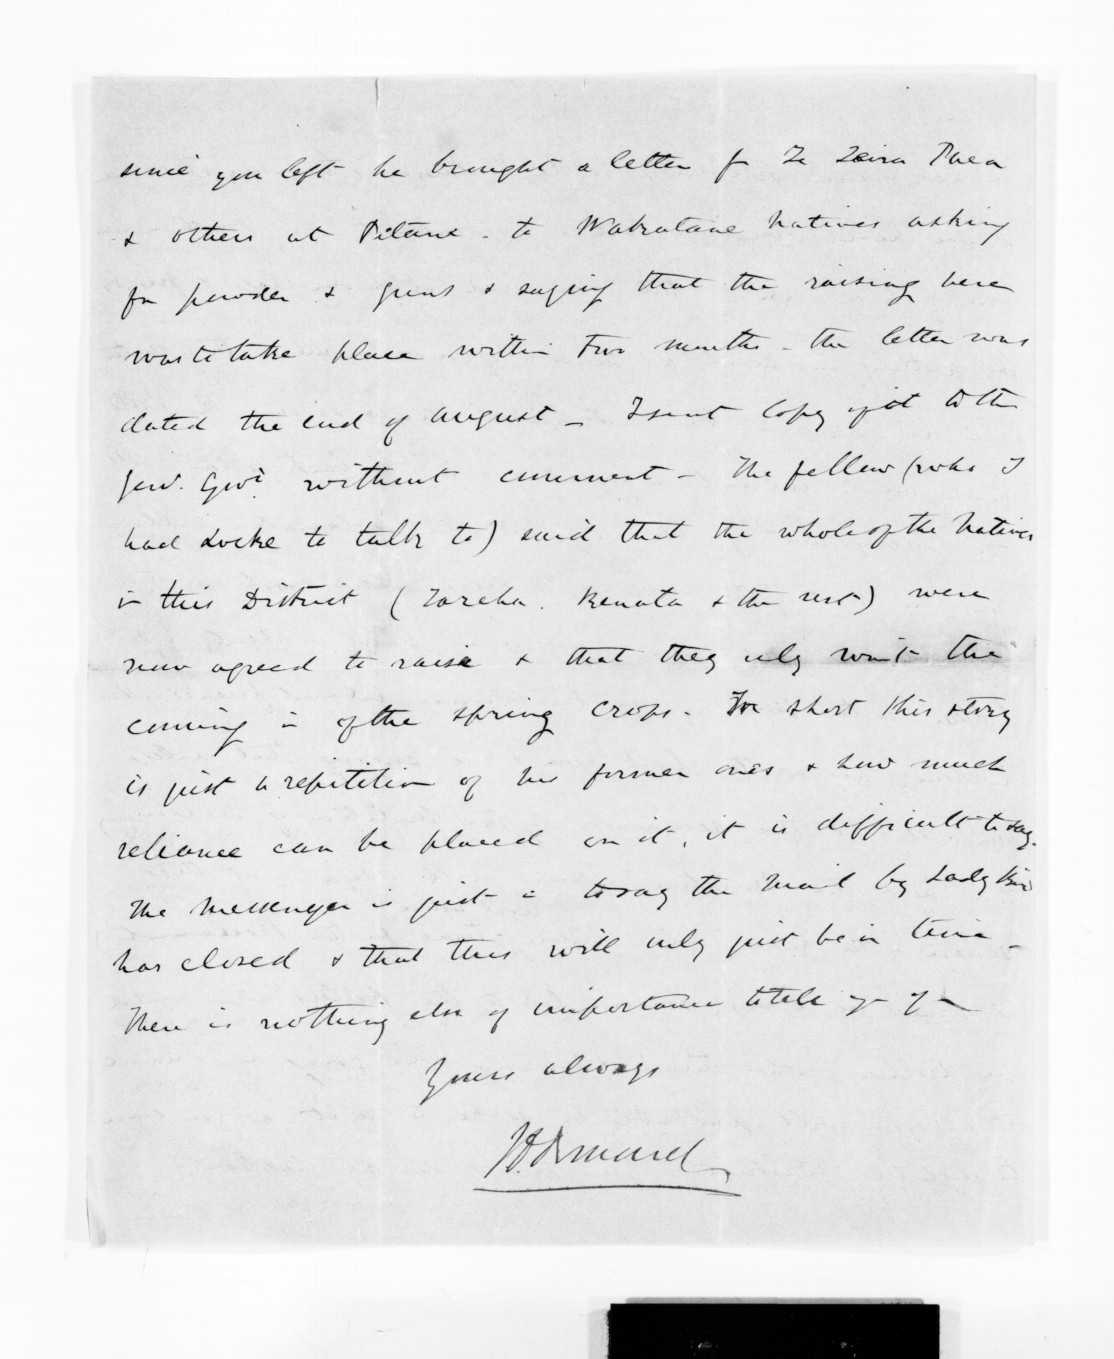 since you left he brought a letter fr Te Teira Paea
& others at Petane - to Wakatane Natives asking
for powder & guns & saying that the raising here
was to take place within two months - the letter was
dated the end of August - I sent Copy of it to the
Genl. Govt. without comment - The fellow (who I
had Locke to talk to) said that the whole of the Natives
in this District (Tareha. Renata & the rest) were
now agreed to raise & that they only wait the
coming in of the spring crops. In short this story
is just a repitition of his former ones & how much
reliance can be placed on it, it is difficult to say.
The Messenger is just in to say the Mail by Lady Bird
has closed & that this will only just be in time -
There is nothing else of importance to tell you of
Yours always
J D Ormond